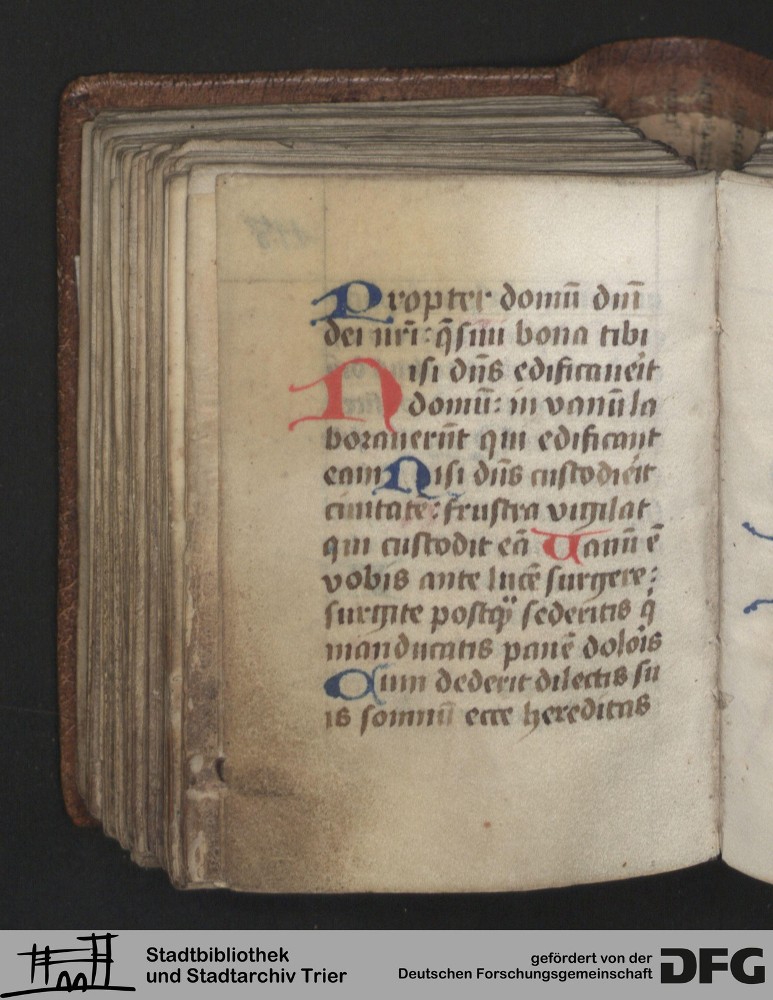 Propter domū dm̄
dei nr̄i: q̄siui bona tibi
Nisi dn̄s edificaueit
domū: in vanū la
borauerūt qui edificant
eam Nisi dn̄s custodieit
ciuitatē: frustra vigilat
qui custodit eā Vanū ē
vobis ante lucē surgere:
surgite postq̄ sederitis q
manducatis panē dolois
Cum dederit dilectis su
is somnū ecce hereditas
Stadtbibliothek
und Stadtarchiv Trier
gefördert von der
Deutschen Forschungsgemeinschaft
DFG